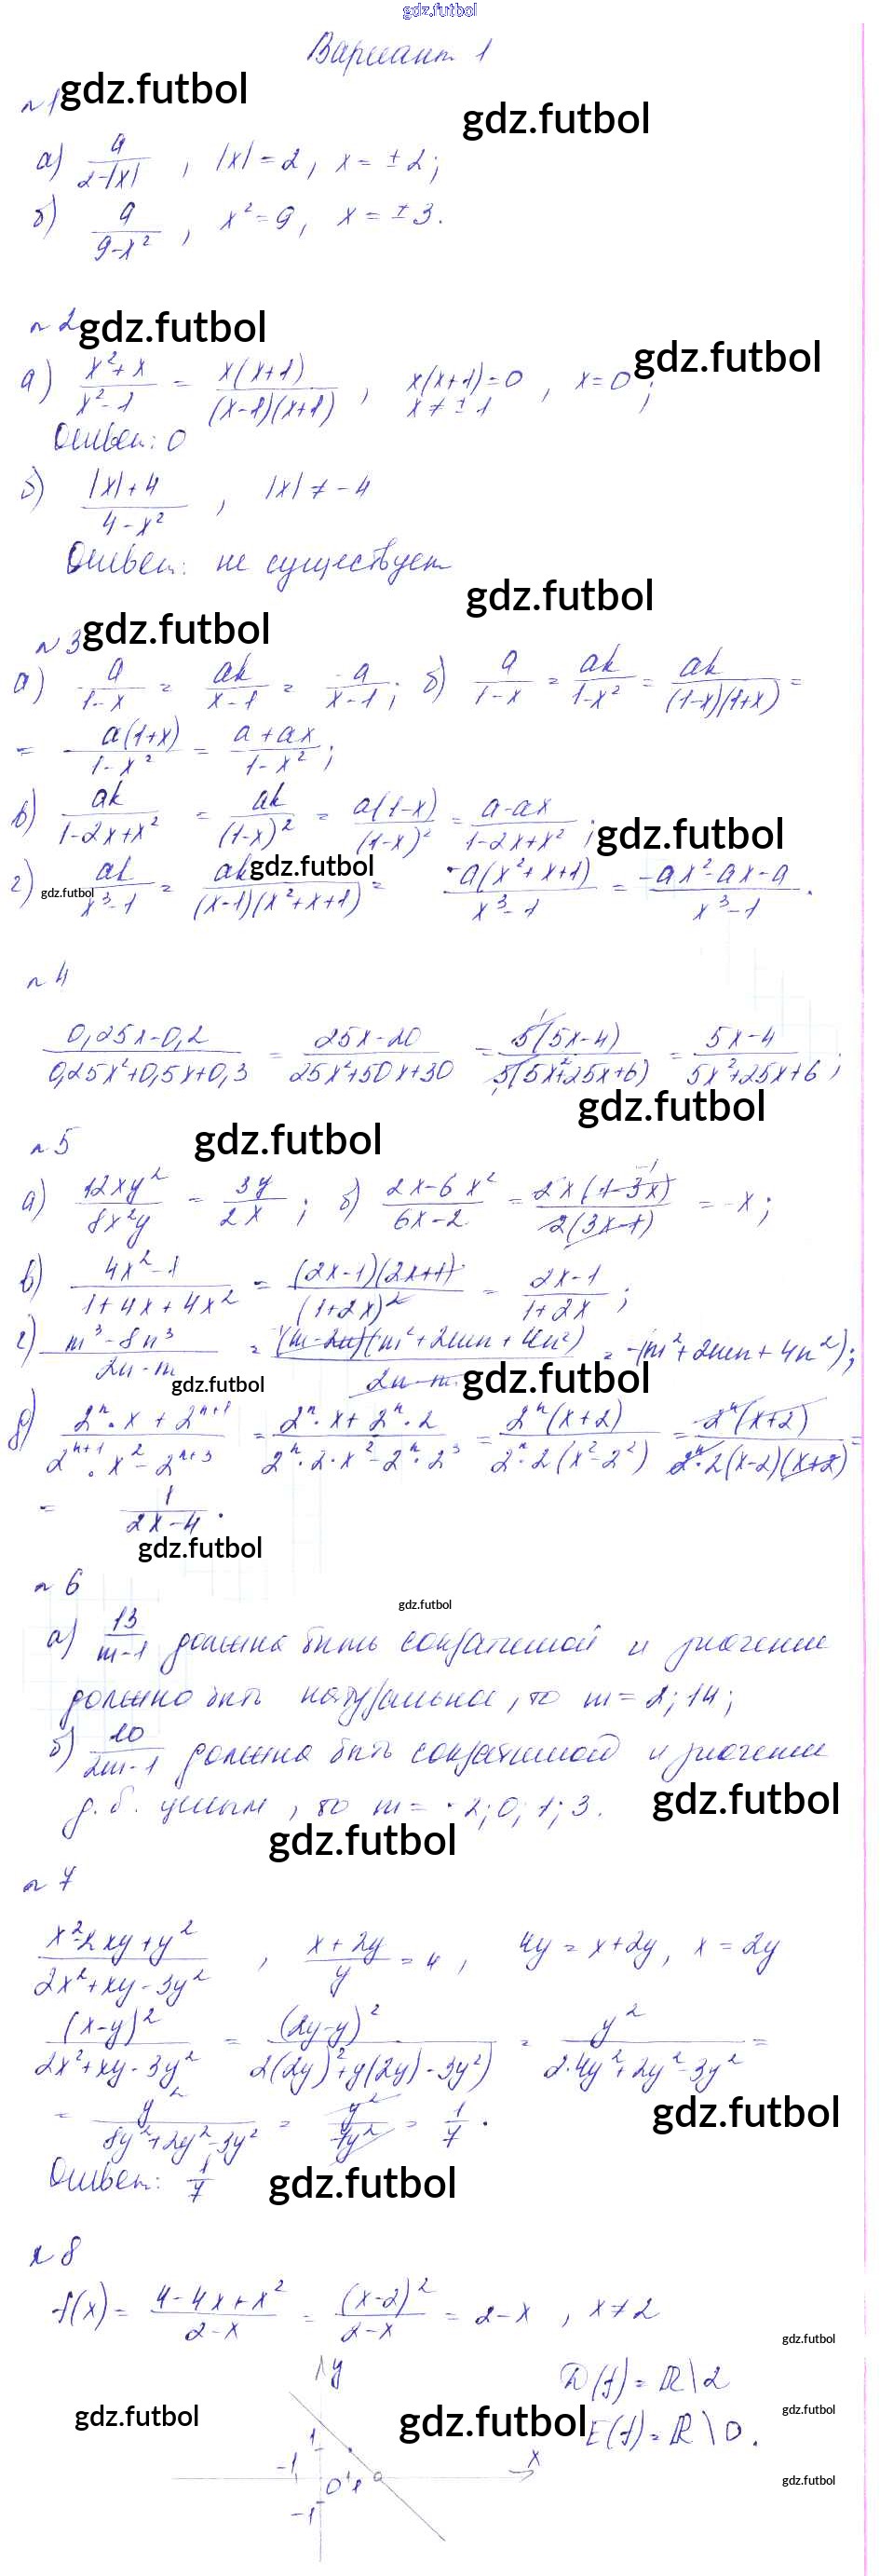 gdz.futbol
Вариант 1
n 1 gdz.futbol
gdz.futbol
а) a/(2-|x|) , |x| = 2, x = ± 2;
б) a/(9-x²) , x² = 9, x = ± 3.
n 2 gdz.futbol
gdz.futbol
а) (x²+x)/(x²-1) = x(x+1)/((x-1)(x+1)) , x(x+1)=0 , x=0 ;
x ≠ ± 1
Ответ: 0
б) (|x|+4)/(4-x²) , |x| ≠ -4
Ответ: не существует
gdz.futbol
n 3 gdz.futbol
а) a/(1-x) = ak/(x-1) = -a/(x-1) ; б) a/(1-x) = ak/(1-x²) = ak/((1-x)(1+x)) =
= a(1+x)/(1-x²) = (a+ax)/(1-x²) ;
в) ak/(1-2x+x²) = ak/(1-x)² = a(1-x)/(1-x)² = (a-ax)/(1-2x+x²) ; gdz.futbol
г) gdz.futbol ak/(x³-1) = ak gdz.futbol/((x-1)(x²+x+1)) = -a(x²+x+1)/(x³-1) = (-ax²-ax-a)/(x³-1) .
n 4
(0,25x-0,2)/(0,25x²+0,5x+0,3) = (25x-20)/(25x²+50x+30) = 5(5x-4)/(5(5x²+25x+6)) = (5x-4)/(5x²+25x+6) ;
gdz.futbol
n 5 gdz.futbol
а) 12xy²/(8x²y) = 3y/(2x) ; б) (2x-6x²)/(6x-2) = 2x(1-3x)/(2(3x-1)) = -x ;
в) (4x²-1)/(1+4x+4x²) = (2x-1)(2x+1)/(1+2x)² = (2x-1)/(1+2x) ;
г) (m³-8n³)/(2n-m) = (m-2n)(m²+2mn+4n²)/(2n-m) = -(m²+2mn+4n²);
gdz.futbol gdz.futbol
д) (2ⁿ·x+2ⁿ⁺¹)/(2ⁿ⁺¹·x²-2ⁿ⁺³) = (2ⁿ·x+2ⁿ·2)/(2ⁿ·2·x²-2ⁿ·2³) = 2ⁿ(x+2)/(2ⁿ·2(x²-2²)) = 2ⁿ(x+2)/(2ⁿ·2(x-2)(x+2)) =
= 1/(2x-4) .
gdz.futbol
n 6
gdz.futbol
а) 13/(m-1) должна быть сократимой и значение
должно быть натуральное, то m = 2; 14;
б) 20/(2m-1) должна быть сократимой и значение
д.б. целым, то m = -2; 0; 1; 3. gdz.futbol
gdz.futbol
n 7
(x²-2xy+y²)/(2x²+xy-3y²) , (x+2y)/y = 4 , 4y = x+2y, x = 2y
(x-y)²/(2x²+xy-3y²) = (2y-y)²/(2(2y)²+y(2y)-3y²) = y²/(2·4y²+2y²-3y²) =
gdz.futbol
= y²/(8y²+2y²-3y²) = y²/(7y²) = 1/7 .
Ответ: 1/7 gdz.futbol
n 8
f(x) = (4-4x+x²)/(2-x) = (x-2)²/(2-x) = 2-x , x ≠ 2
gdz.futbol
y
D(f) = ℝ\2
gdz.futbol gdz.futbol E(f) = ℝ\0 . gdz.futbol
1
-1 x
0 1
gdz.futbol
-1